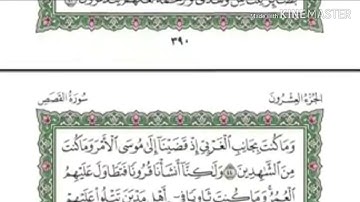 ٣٩٠
Made with KINEMASTER
الجزء العشرون
سورة القصص
وَمَا كُنتَ بِجَانِبِ الْغَرْبِيِّ إِذْ قَضَيْنَا إِلَىٰ مُوسَى الْأَمْرَ وَمَا كُنتَ
مِنَ الشَّاهِدِينَ ٤٤ وَلَٰكِنَّا أَنشَأْنَا قُرُونًا فَتَطَاوَلَ عَلَيْهِمُ
الْعُمُرُ وَمَا كُنتَ ثَاوِيًا فِي أَهْلِ مَدْيَنَ تَتْلُو عَلَيْهِمْ